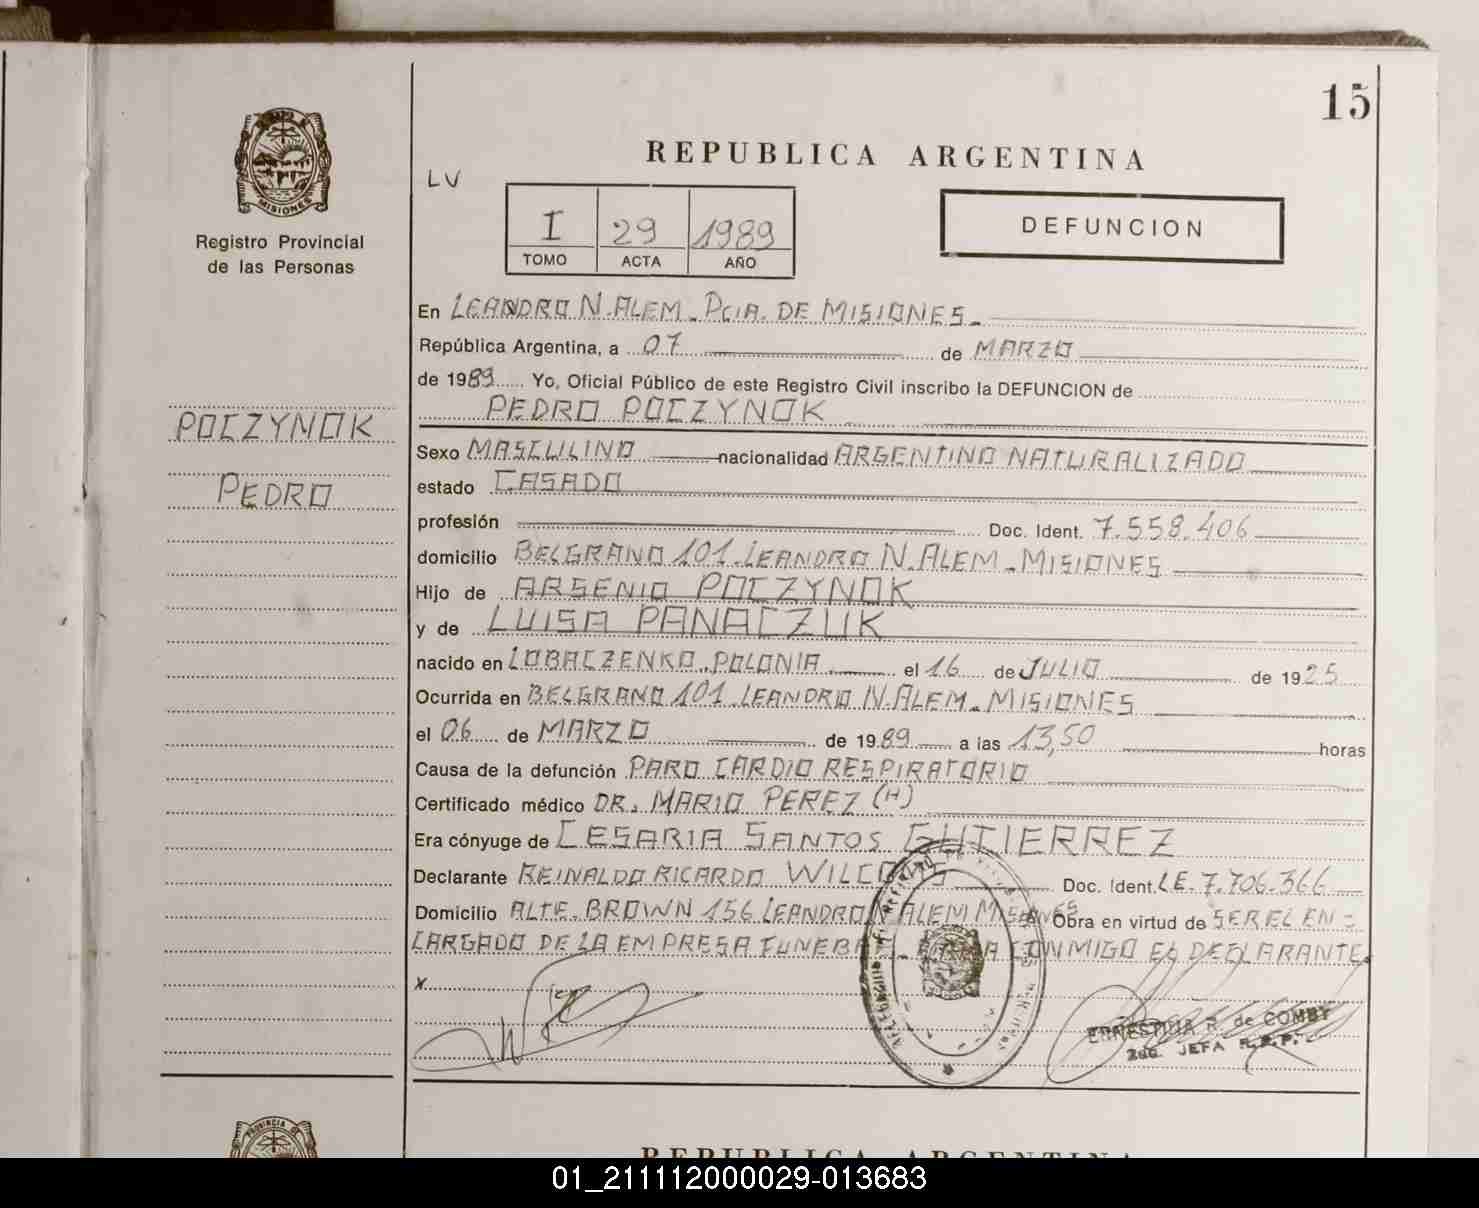 15
MISIONES
Registro Provincial
de las Personas
POCZYNOK
PEDRO
REPUBLICA ARGENTINA
LV
I 29 1989
TOMO ACTA AÑO
DEFUNCION
En LEANDRO N. ALEM - PCIA. DE MISIONES -
República Argentina, a 07 de MARZO
de 1989 Yo, Oficial Público de este Registro Civil inscribo la DEFUNCION de
PEDRO POCZYNOK
Sexo MASCULINO nacionalidad ARGENTINO NATURALIZADO
estado CASADO
profesión Doc. Ident. 7.558.406
domicilio BELGRANO 101 - LEANDRO N. ALEM - MISIONES
Hijo de ARSENIO POCZYNOK
y de LUISA PANACZUK
nacido en LOBACZENKO - POLONIA el 16 de JULIO de 1925
Ocurrida en BELGRANO 101 - LEANDRO N. ALEM - MISIONES
el 06 de MARZO de 1989 a las 13,50 horas
Causa de la defunción PARO CARDIO RESPIRATORIO
Certificado médico DR. MARIO PEREZ (H)
Era cónyuge de CESARIA SANTOS GUTIERREZ
Declarante REINALDO RICARDO WILCOMS Doc. Ident. LE. 7.706.366
Domicilio ALTE. BROWN 156 LEANDRO N ALEM MISIONES Obra en virtud de SER EL EN=
CARGADO DE LA EMPRESA FUNEBRE - FIRMA CONMIGO EL DECLARANTE.
x
ERNESTINA R. de COMBY
2da. JEFA R.P.P.
PROVINCIA DE
REPUBLICA ARGENTINA
01_211112000029-013683